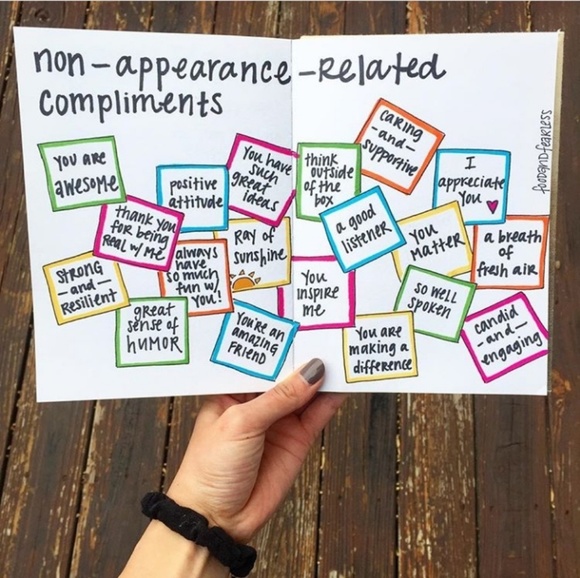 non-appearance-Related
compliments
you are
awesome
positive
attitude
You have
such
great
ideas
think
outside
of the
box
caring
-and-
supportive
I
appreciate
you ♥
thank you
for being
Real w/ me
always
have
so much
fun w/
you!
Ray of
sunshine
a good
listener
you
matter
a breath
of
fresh air
strong
-and-
Resilient
great
sense of
humor
You're an
amazing
friend
You
inspire
me
You are
making a
difference
so well
spoken
candid
-and-
engaging
foodandfearless